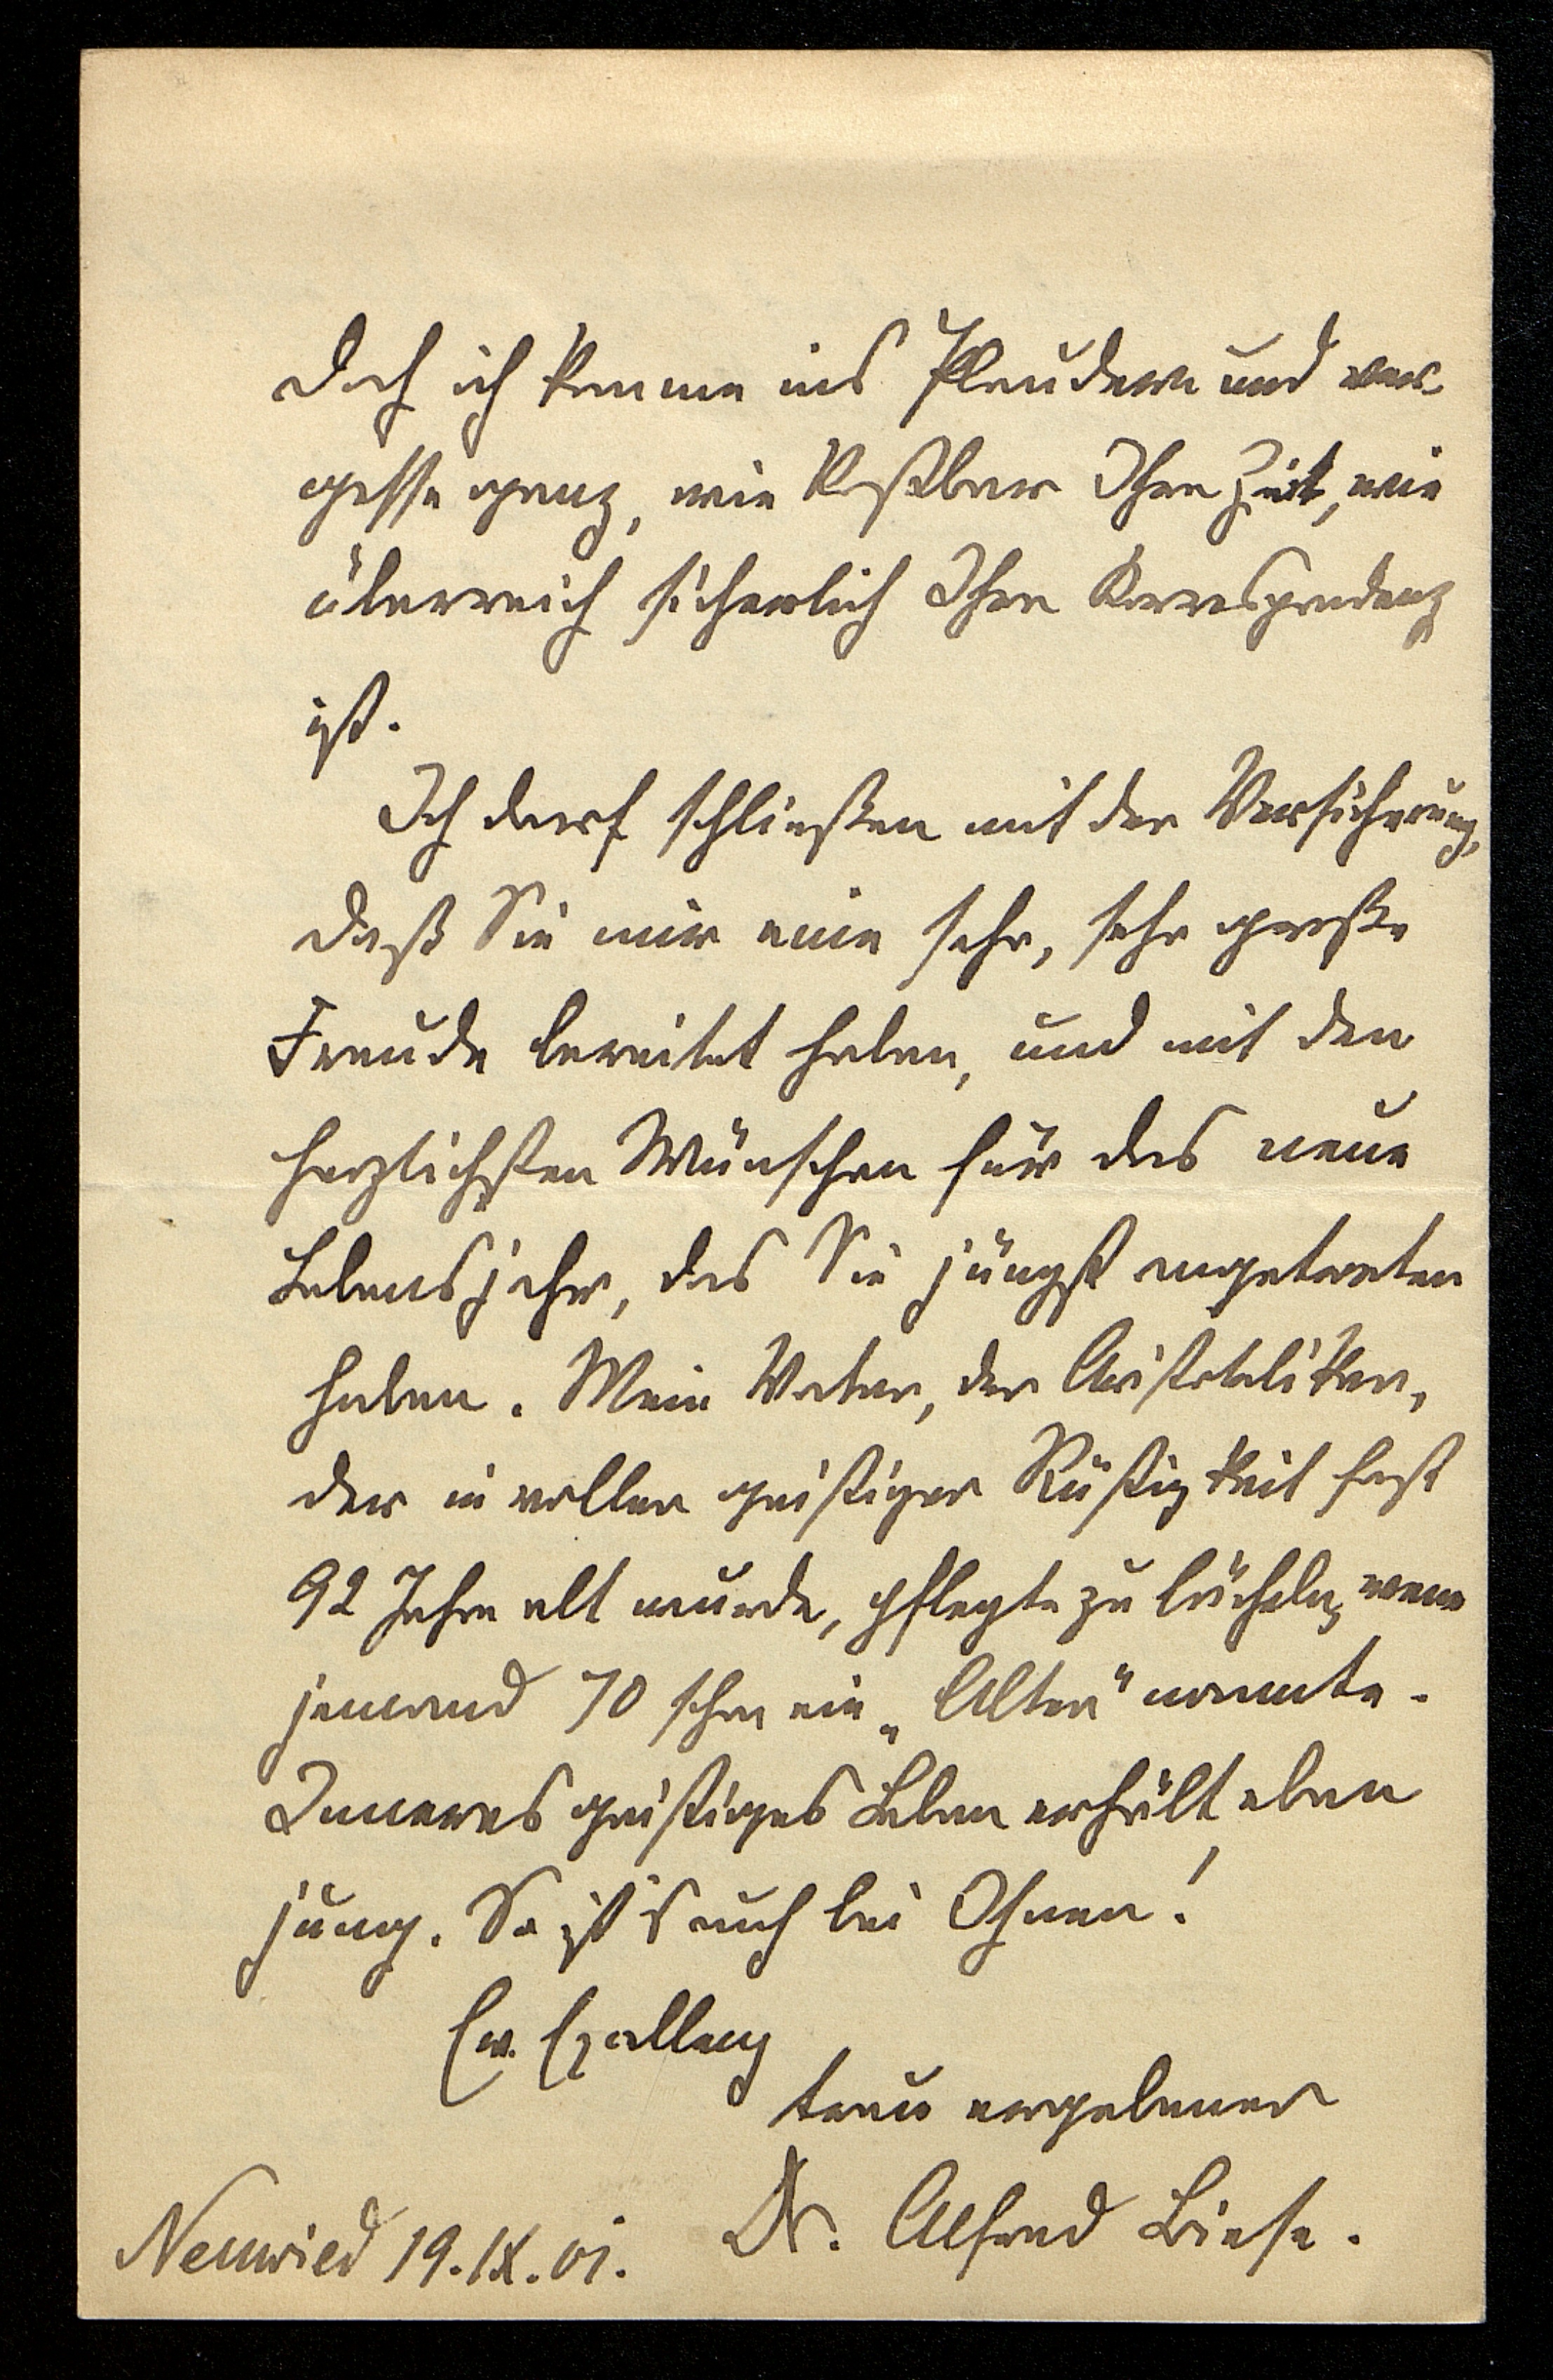 Doch ich komme ins Plaudern und ver-
gesse ganz, wie kostbar Ihre Zeit, wie
überreich sicherlich Ihre Korrespondenz
ist.
Ich darf schließen mit der Versicherung,
daß Sie mir eine sehr, sehr große
Freude bereitet haben, und mit den
herzlichsten Wünschen für das neue
Lebensjahr, das Sie jüngst angetreten
haben. Mein Vater, der Aristoteliker,
der in voller geistiger Rüstigkeit fast
92 Jahre alt wurde, pflegte zu lächeln, wenn
jemand 70 schon ein „Alter" nannte.
Inneres geistiges Leben erhält eben
jung. So ist's auch bei Ihnen!
Ew. Exzellenz
treu ergebener
Dr. Alfred Biese.
Neuwied 19.IX.01.